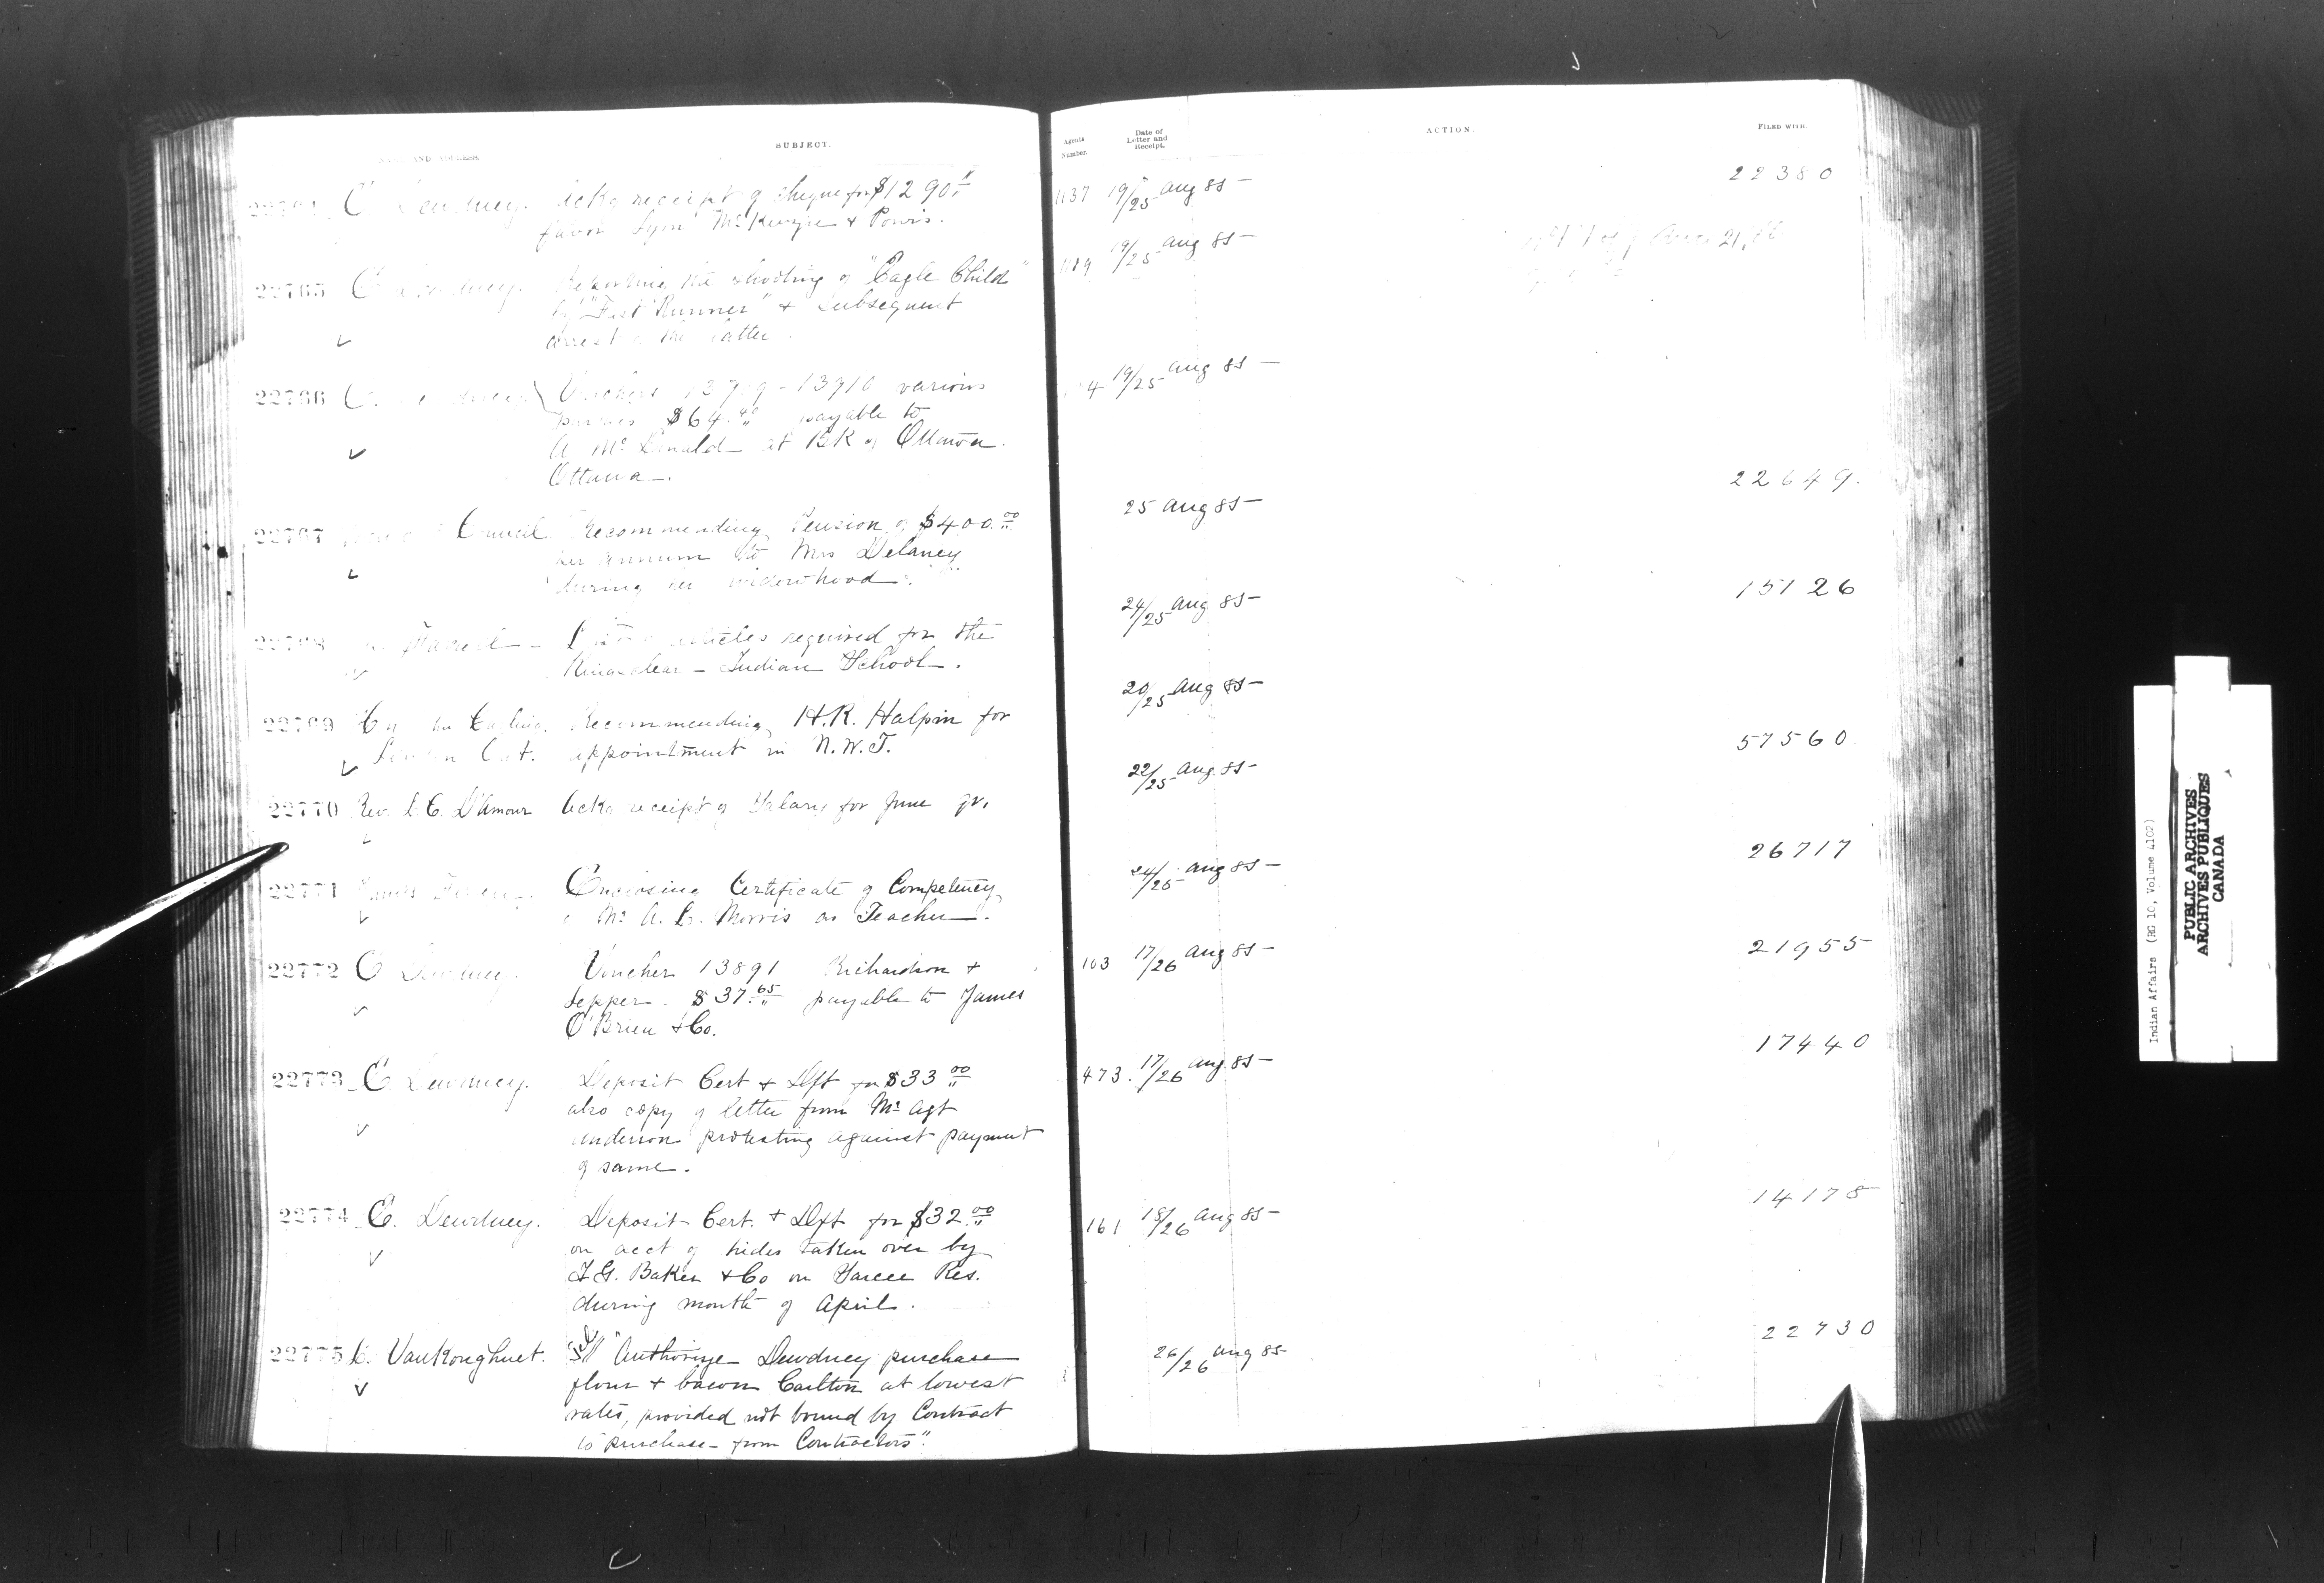 NAME AND ADDRESS. SUBJECT.
E. Dewdney. Ackg receipt of cheque for $1290.
favor Lyon McKenzie & Powis.
22765 E Dewdney. Reporting the shooting of "Eagle Child"
by "Fast Runner" & subsequent
arrest of the latter.
22766 E. Dewdney Vouchers 13910 various
parties $64. payable to
A McDonald at BK of Ottawa.
Ottawa.
22767 Council. Recommending Pension of $400.00
per annum to Mrs Delaney
during her widowhood.
22768 Farrell articles required for the
Kingsclear Indian School.
22769 Carling. Recommending H.R. Halpin for
London Ont. appointment in N.W.T.
22770 Rev. L. C. D'Amour Ackg receipt of Salary for June qr.
22771 Enclosing Certificate of Competency
of Mr A. G. Morris as Teacher.
22772 E Dewdney. Voucher 13891 Richardson &
Lepper - $37.65 payable to James
O'Brien & Co.
22773 E Dewdney. Deposit Cert & Dft for $33.00
also copy of letter from Mr Agt
Anderson protesting against payment
of same.
22774 E. Dewdney. Deposit Cert. & Dft for $32.00
on acct of hides taken over by
I.G. Baker & Co on Sarcee Res.
during month of April.
22775 L. VanKoughnet. "Authorize Dewdney purchase
flour & bacon Carlton at lowest
rates, provided not bound by Contract
to purchase from Contractors".
Agents Number. Date of Letter and Receipt. ACTION. FILED WITH.
1137 19/25 Aug 85 22380
19/25 Aug 85
4 19/25 Aug 85
25 Aug 85 22649.
24/25 Aug 85 15126
20/25 Aug 85
22/25 Aug 85 57560
24/25 Aug 85 26717
103 17/26 Aug 85 21955
473. 17/26 Aug 85 17440
161 18/26 Aug 85 14178
26/26 Aug 85 22730
Indian Affairs (RG 10, Volume 4102)
PUBLIC ARCHIVES
ARCHIVES PUBLIQUES
CANADA